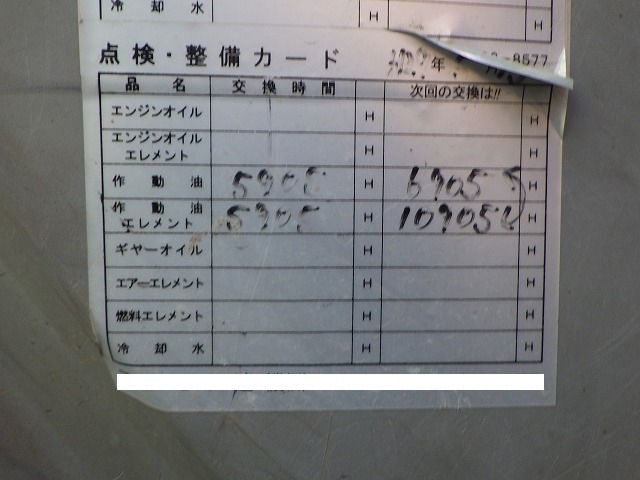 冷却水 H H
点検・整備カード 年 8577
品名 交換時間 次回の交換は!!
エンジンオイル H H
エンジンオイル
エレメント H H
作動油 5905 H H
作動油
エレメント 5905 H H
ギヤーオイル H H
エアーエレメント H H
燃料エレメント H H
冷却水 H H